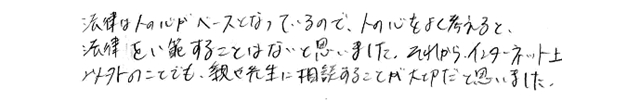 法律は人の心がベースとなっているので、人の心をよく考えると、
法律をい範することはないと思いました。それから、インターネット上
以外のことでも、親や先生に相談することが大切だと思いました。